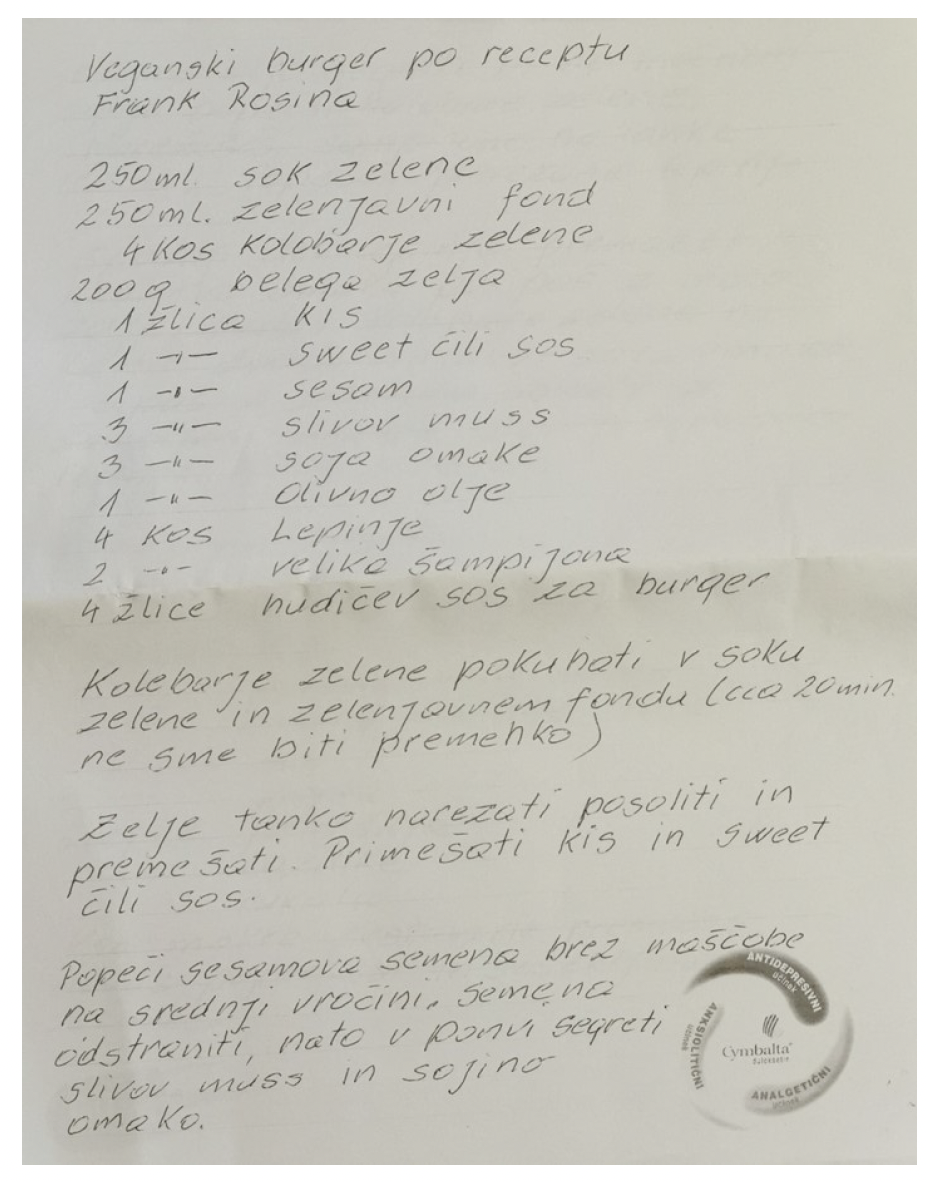 Veganski burger po receptu
Frank Rosina
250ml. sok zelene
250ml. zelenjavni fond
4 kos kolobarje zelene
200 g belega zelja
1 žlica kis
1 -"- sweet čili sos
1 -"- sesam
3 -"- slivov muss
3 -"- soja omake
1 -"- olivno olje
4 kos Lepinje
2 -"- velika šampijona
4 žlice hudičev sos za burger
Kolebarje zelene pokuhati v soku
zelene in zelenjavnem fondu (cca 20min.
ne sme biti premehko)
Zelje tanko narezati posoliti in
premešati. Primešati kis in sweet
čili sos.
Popeči sesamova semena brez maščobe
na srednji vročini, semena
odstraniti, nato v ponvi segreti
slivov muss in sojino
omako.
ANTIDEPRESIVNI
učinek
ANKSIOLITIČNI
učinek
Cymbalta
ANALGETIČNI
učinek